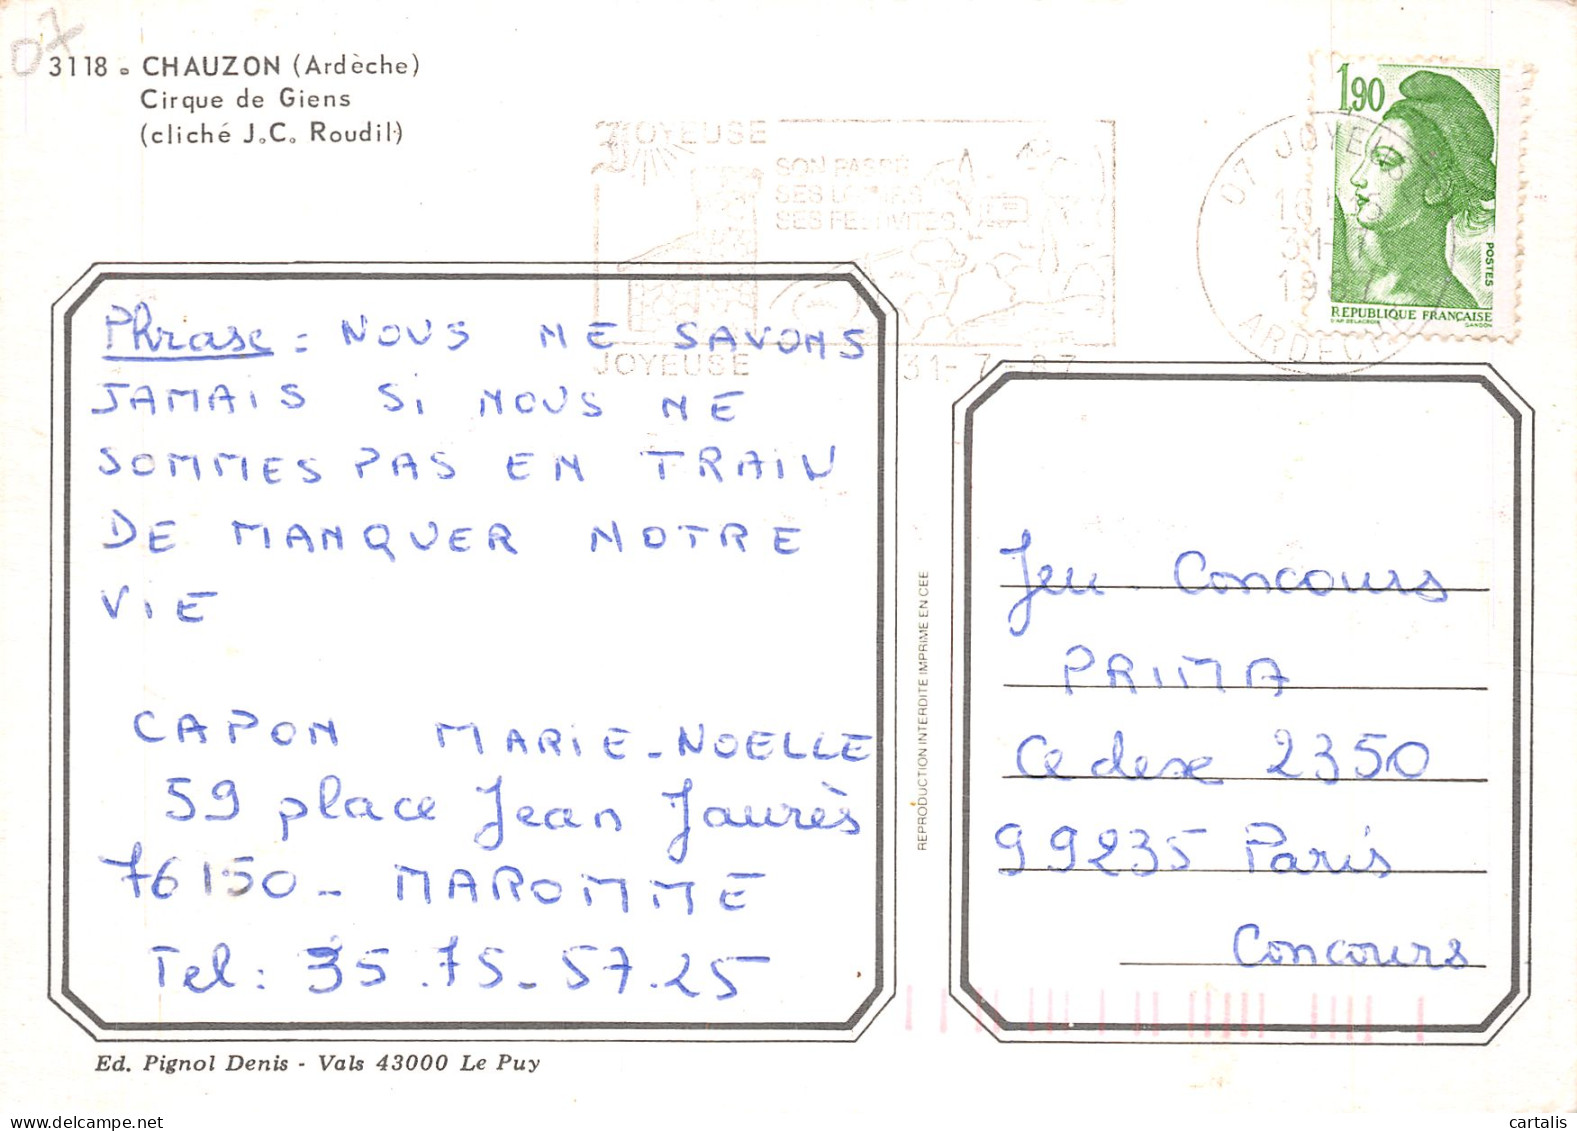 07
3118 - CHAUZON (Ardèche)
Cirque de Giens
(cliché J.C. Roudil)
JOYEUSE
SON PASSÉ
SES
SES FESTIVITES
JOYEUSE
31-7-87
07 JOYEUSE
31-
1987
ARDECHE
1,90
POSTES
REPUBLIQUE FRANÇAISE
D'AP. DELACROIX GANDON
Phrase : NOUS NE SAVONS
JAMAIS SI NOUS NE
SOMMES PAS EN TRAIN
DE MANQUER NOTRE
VIE
CAPON MARIE-NOELLE
59 place Jean Jaurès
76150 - MAROMME
Tel : 35.75-57.25
REPRODUCTION INTERDITE IMPRIME EN CEE
Jeu Concours
PRIMA
Cedex 2350
99235 Paris
Concours
Ed. Pignol Denis - Vals 43000 Le Puy
cartalis